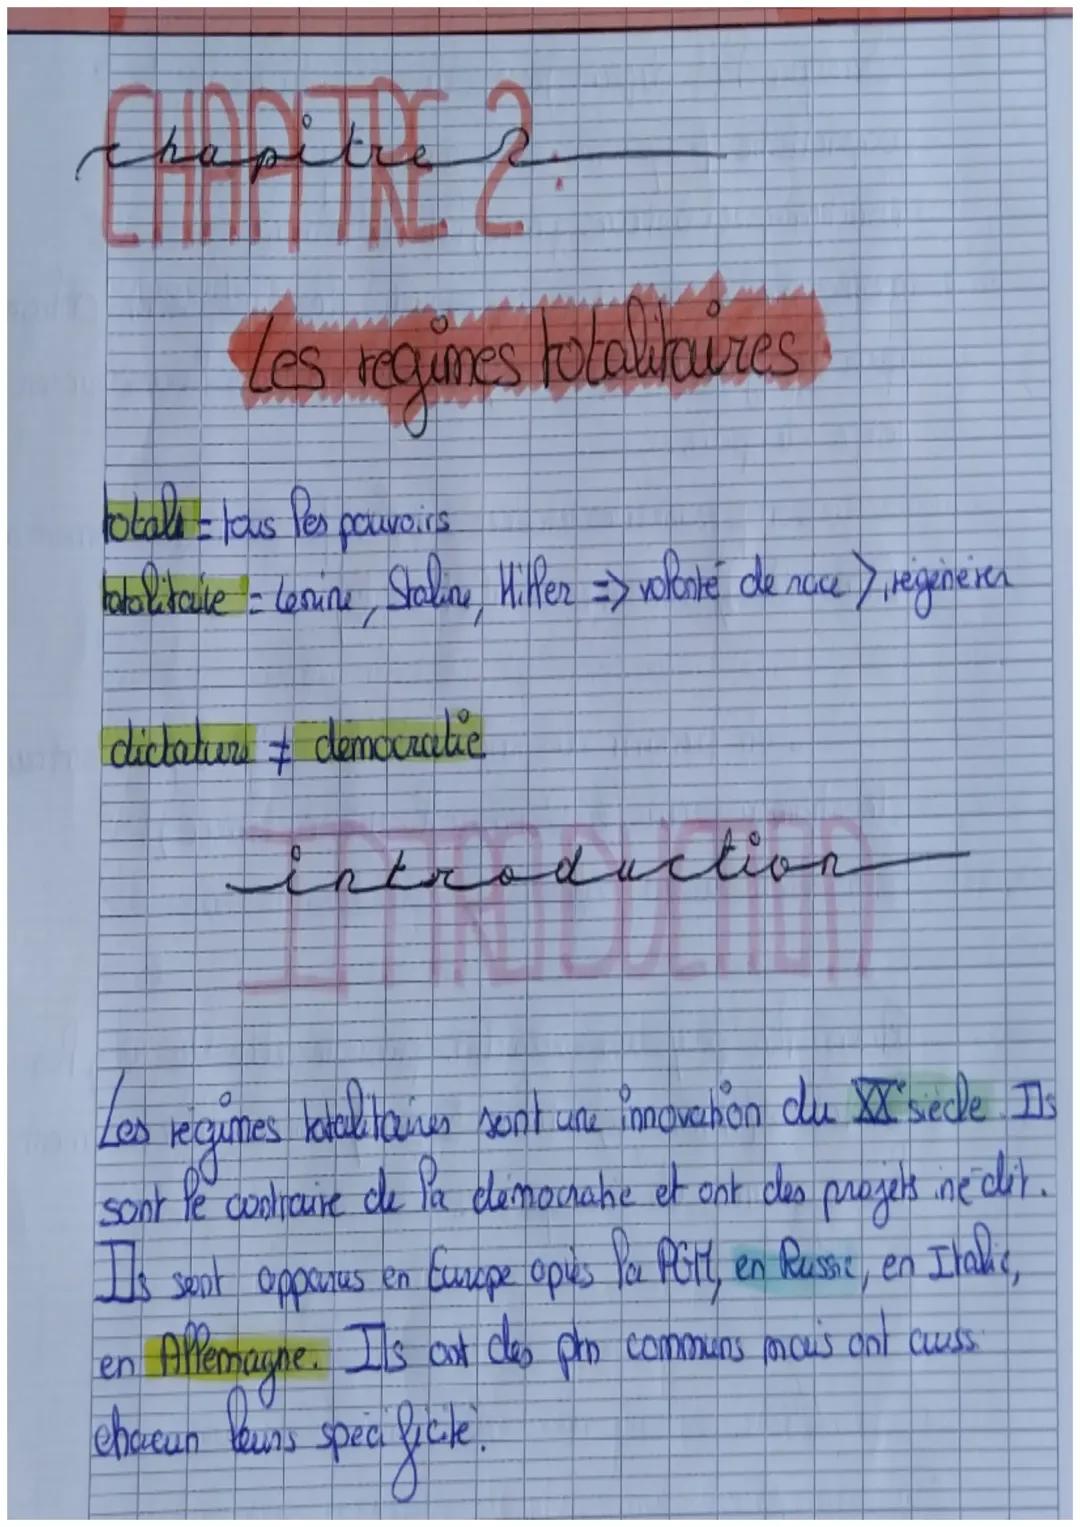 CHAPITRE 2:
chapitre 2
Les regimes totalitaires
totali = tous les pouvoirs
totalitaire = Lenine, Staline, Hitler => volonté de race >, régénérer
dictature ≠ démocratie
INTRODUCTION
introduction
Les régimes totalitaires sont une innovation du XXe siècle. Ils
sont le contraire de la démocratie et ont des projets inédit.
Ils sont apparus en Europe après la PGM, en Russie, en Italie,
en Allemagne. Ils ont des ptn communs mais ont aussi
chacun leurs spécificité.